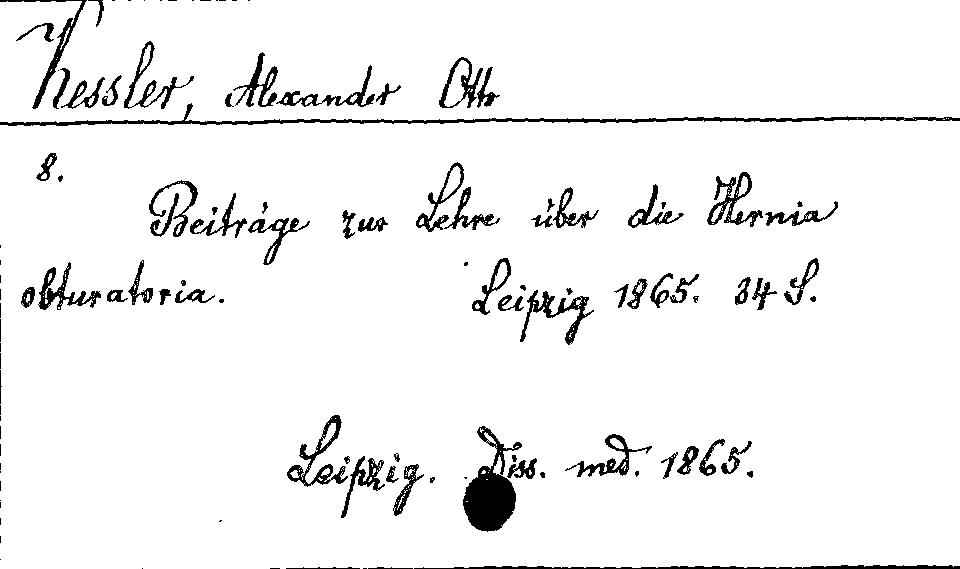 Kessler, Alexander Otto
8.
Beiträge zur Lehre über die Hernia
obturatoria. Leipzig 1865. 34 S.
Leipzig. Diss. med. 1865.